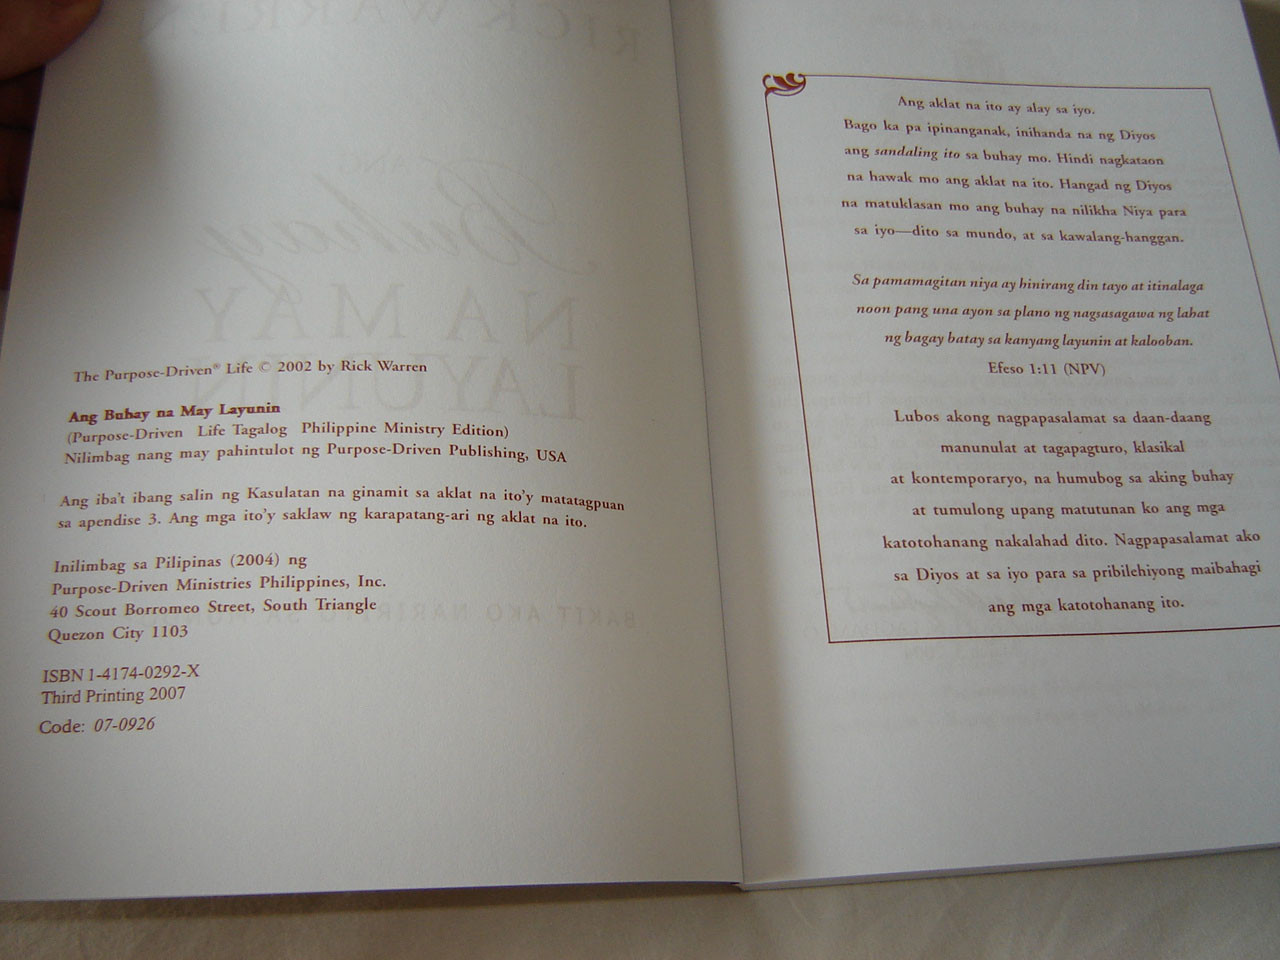 The Purpose-Driven® Life © 2002 by Rick Warren
Ang Buhay na May Layunin
(Purpose-Driven Life Tagalog Philippine Ministry Edition)
Nilimbag nang may pahintulot ng Purpose-Driven Publishing, USA
Ang iba't ibang salin ng Kasulatan na ginamit sa aklat na ito'y matatagpuan
sa apendise 3. Ang mga ito'y saklaw ng karapatang-ari ng aklat na ito.
Inilimbag sa Pilipinas (2004) ng
Purpose-Driven Ministries Philippines, Inc.
40 Scout Borromeo Street, South Triangle
Quezon City 1103
ISBN 1-4174-0292-X
Third Printing 2007
Code: 07-0926
Ang aklat na ito ay alay sa iyo.
Bago ka pa ipinanganak, inihanda na ng Diyos
ang sandaling ito sa buhay mo. Hindi nagkataon
na hawak mo ang aklat na ito. Hangad ng Diyos
na matuklasan mo ang buhay na nilikha Niya para
sa iyo—dito sa mundo, at sa kawalang-hanggan.
Sa pamamagitan niya ay hinirang din tayo at itinalaga
noon pang una ayon sa plano ng nagsasagawa ng lahat
ng bagay batay sa kanyang layunin at kalooban.
Efeso 1:11 (NPV)
Lubos akong nagpapasalamat sa daan-daang
manunulat at tagapagturo, klasikal
at kontemporaryo, na humubog sa aking buhay
at tumulong upang matutunan ko ang mga
katotohanang nakalahad dito. Nagpapasalamat ako
sa Diyos at sa iyo para sa pribilehiyong maibahagi
ang mga katotohanang ito.